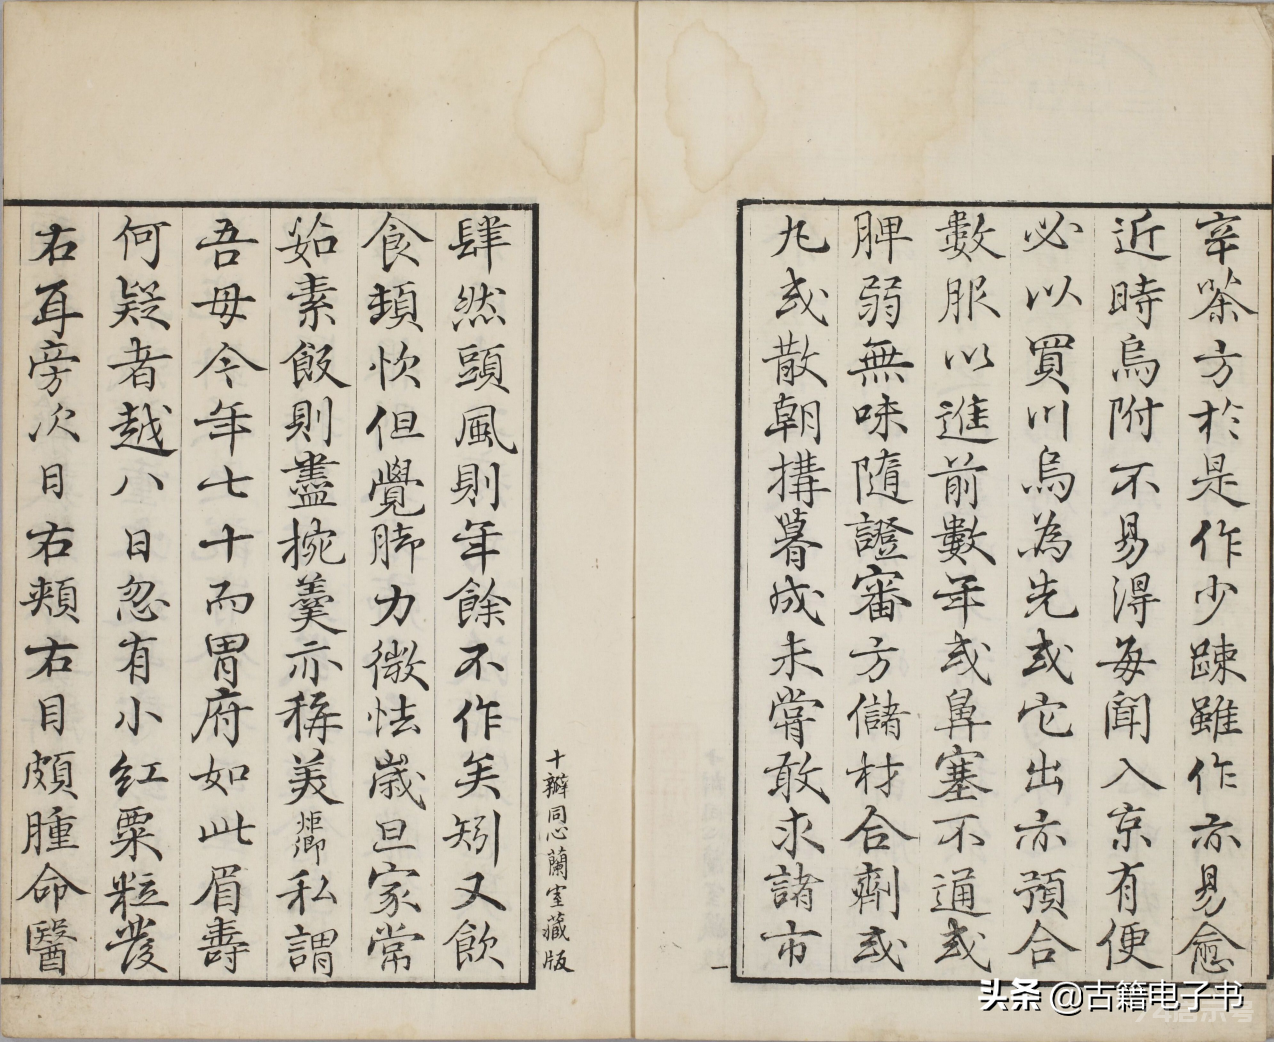 辛𦵔方於是作少踈雖作亦易愈
近時烏附不易得每聞入京有便
必以買川烏為先或它出亦預合
數服以進前數年或鼻塞不通或
脾弱無味隨證審方儲材合劑或
丸或散朝搆暮成未嘗敢求諸市
一
肆然頭風則年餘不作矣矧又飲
食頓忺但覺脚力微怯歲旦家常
茹素飯則盡椀羹亦稱美炬卿私謂
吾母今年七十而胃府如此眉壽
何疑者越八日忽有小紅粟粒發
右耳旁次日右頰右目頗腫命醫
十瓣同心蘭室藏版
头条 @古籍电子书